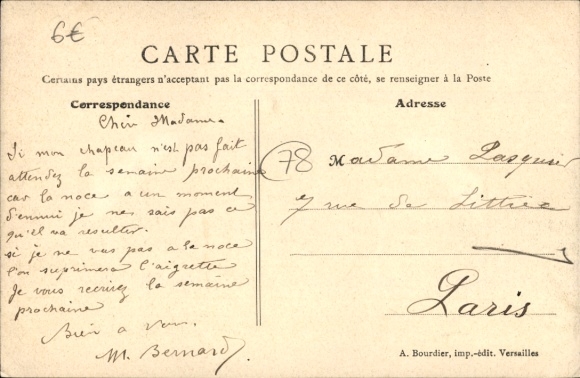 6€
CARTE POSTALE
Certains pays étrangers n'acceptant pas la correspondance de ce côté, se renseigner à la Poste
Correspondance
Chère Madame
Si mon chapeau n'est pas fait
attendez la semaine prochaine
car la noce a un moment
d'ennui je ne sais pas ce
qu'il va resulter.
si je ne vas pas a la noce
l'on suprimera l'aigrette
Je vous recrirez la semaine
prochaine
Bien a vous.
M. Bernard
78
Adresse
Madame Pasquier
7 rue de Littrée
Paris
A. Bourdier, imp.-édit. Versailles